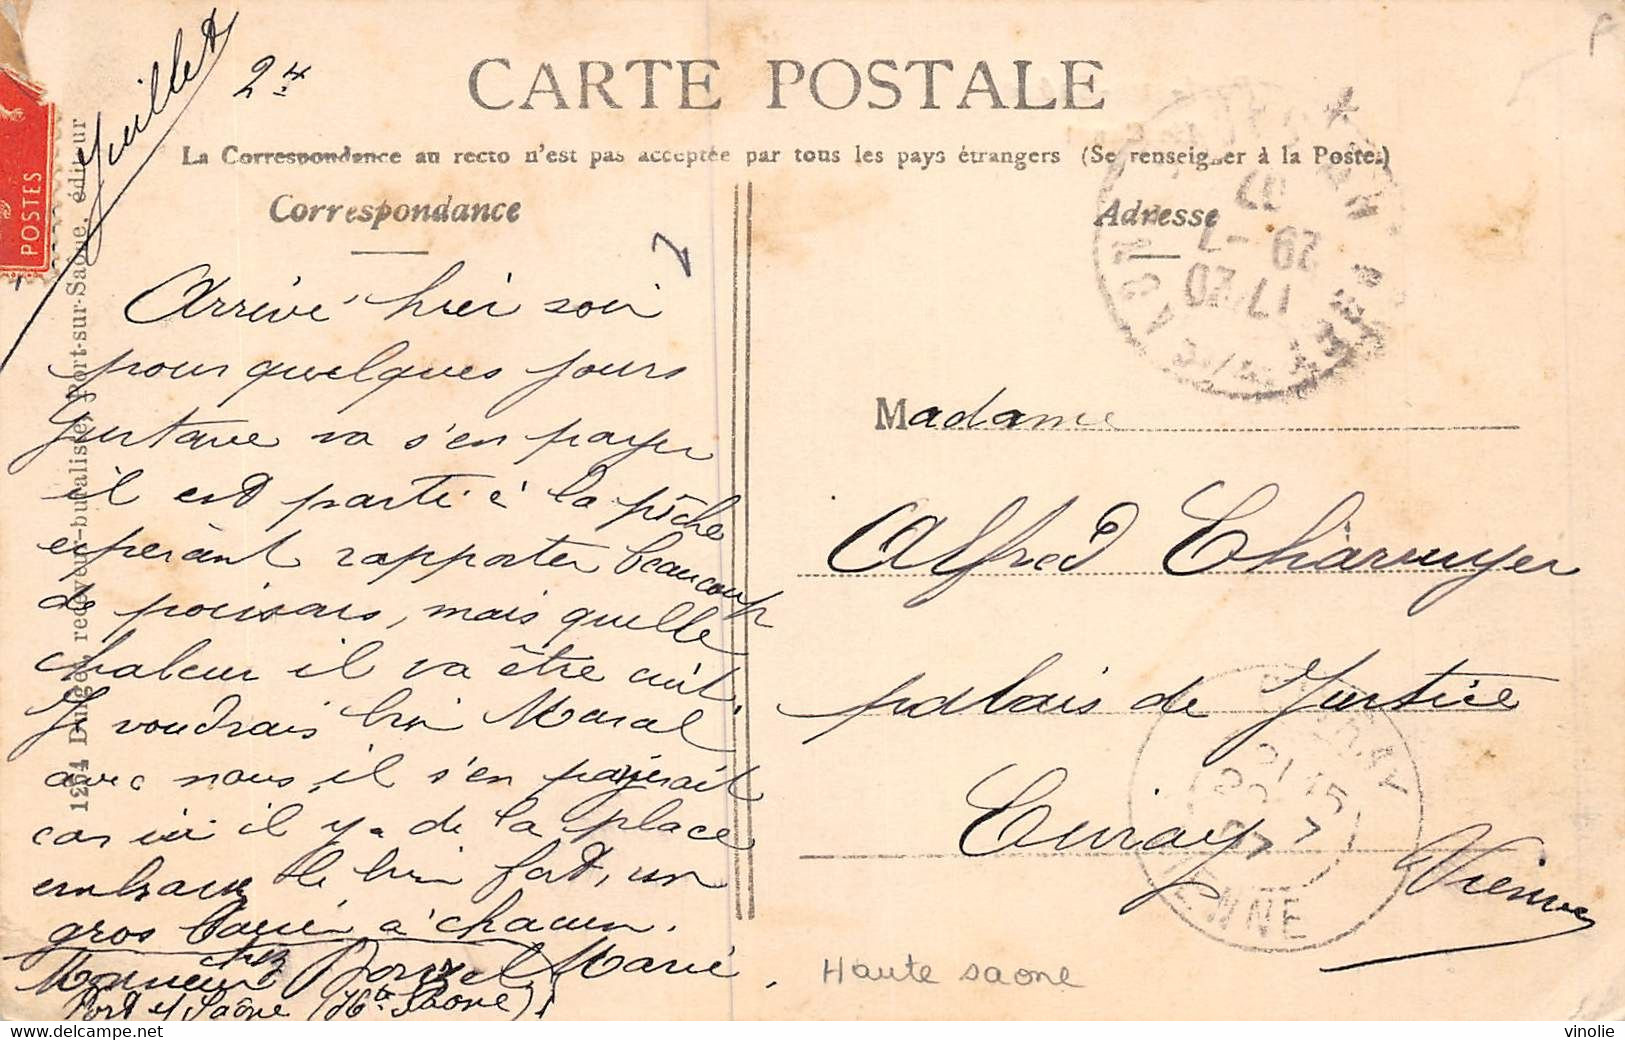 Juillet
24
CARTE POSTALE
La Correspondance au recto n'est pas acceptée par tous les pays étrangers (Se renseigner à la Poste.)
Correspondance
Adresse
POSTES
1264 receveur-buraliste, Port-sur-Saône, éditeur
17/20
29 -7
07
Arrivé hier soir
pour quelques jours
Gustave va s'en payer
il est parti à la pêche
esperant rapporter beaucoup
de poissons, mais quelle
chaleur il va être cuit.
Je voudrais bien
avec nous il s'en payerait
car ici il y a de la place
embrasse le bien fort, un
gros baiser à chacun.
Marie
chez
Monsieur
Port s/ Saône (Hte Saone)
Madame
Alfred
palais de Justice
Civray
Vienne
CIVRAY
VIENNE
Haute saone
vinolie